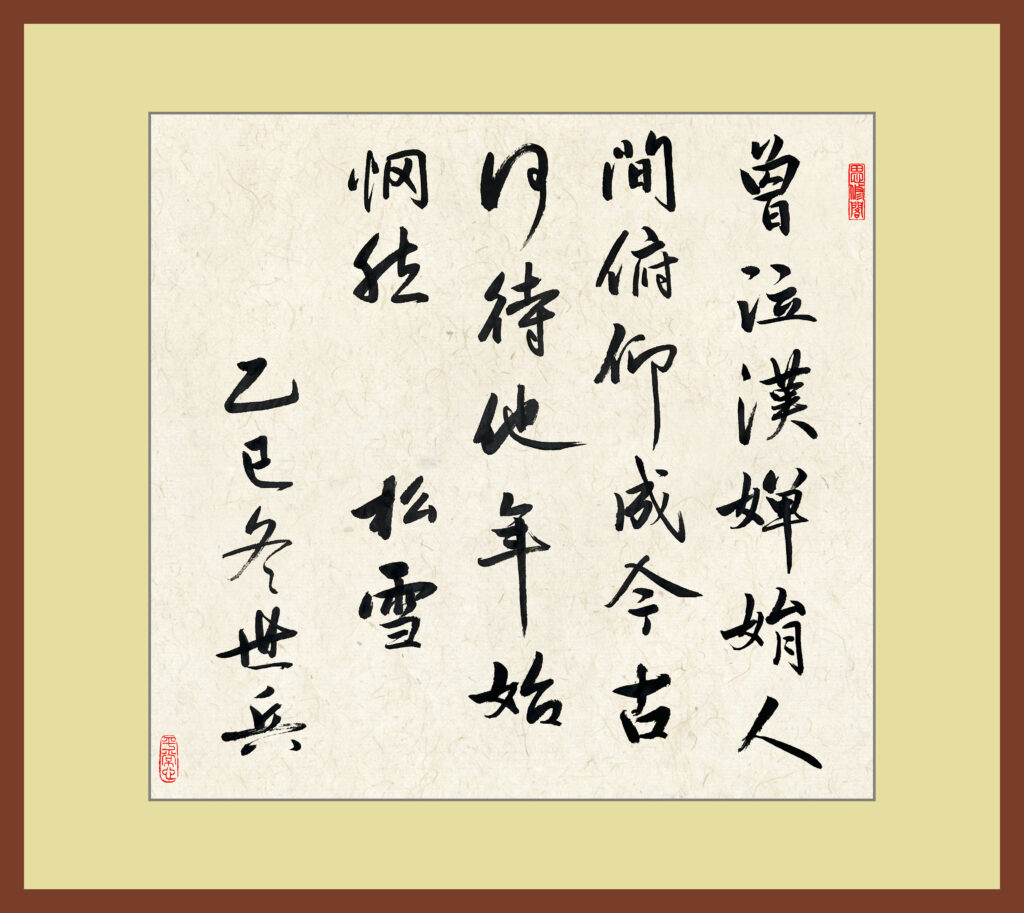 思修閣
曾泣漢嬋娟人
間俯仰成今古
何待他年始
惘然 松雪
乙巳冬世兵
平常心